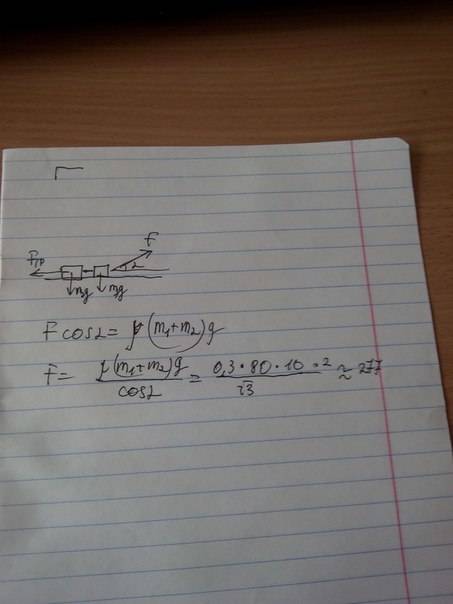 F
Fтр
α
mg
mg
F cosα = μ(m₁+m₂)g
F = μ(m₁+m₂)g / cosα = 0,3·80·10·2 / √3 ≈ 277